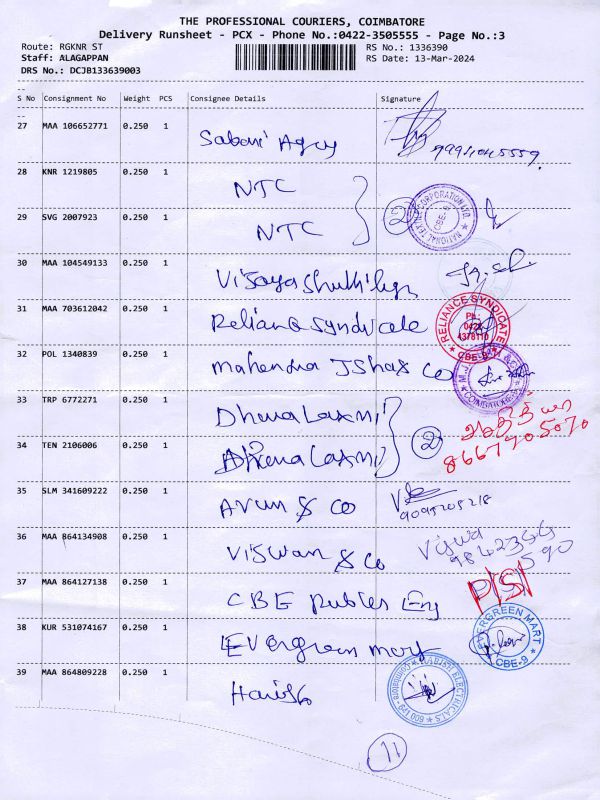 THE PROFESSIONAL COURIERS, COIMBATORE
Delivery Runsheet - PCX - Phone No.:0422-3505555 - Page No.:3
Route: RGKNR ST RS No.: 1336390
Staff: ALAGAPPAN RS Date: 13-Mar-2024
DRS No.: DCJB133639003
S No Consignment No Weight PCS Consignee Details Signature
27 MAA 106652771 0.250 1 Sabari Agcy
28 KNR 1219805 0.250 1 NTC
29 SVG 2007923 0.250 1 NTC
2
NATIONAL TEXTILE CORPORATION LTD. CBE-9
30 MAA 104549133 0.250 1
31 MAA 703612042 0.250 1 Reliance Syndicate
RELIANCE SYNDICATE Ph: 0422 4378110 CBE-9
32 POL 1340839 0.250 1 Mahendra J Shax Co
33 TRP 6772271 0.250 1 Dhena Laxmi
34 TEN 2106006 0.250 1 Dhena Laxmi
2
8667705070
35 SLM 341609222 0.250 1 Arun & Co
9095205218
36 MAA 864134908 0.250 1 Viswan & Co
37 MAA 864127138 0.250 1 CBE
38 KUR 531074167 0.250 1 Evergreen mart
EVERGREEN MART CBE-9
39 MAA 864809228 0.250 1
HARISH ELECTRICALS Coimbatore
11